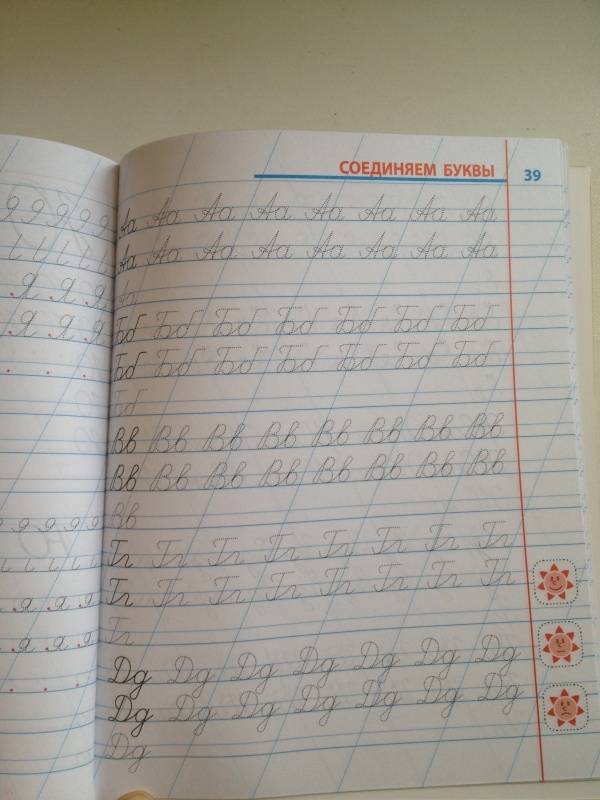 Я Я Я
Я Я Я
я я я
я я я
СОЕДИНЯЕМ БУКВЫ 39
Аа Аа Аа Аа Аа Аа Аа Аа
Аа Аа Аа Аа Аа Аа Аа Аа
Аа
Бб Бб Бб Бб Бб Бб Бб
Бб Бб Бб Бб Бб Бб Бб
Бб
Вв Вв Вв Вв Вв Вв Вв Вв
Вв Вв Вв Вв Вв Вв Вв Вв
Вв
Гг Гг Гг Гг Гг Гг Гг Гг
Гг Гг Гг Гг Гг Гг Гг Гг
Гг
Дд Дд Дд Дд Дд Дд Дд
Дд Дд Дд Дд Дд Дд Дд
Дд